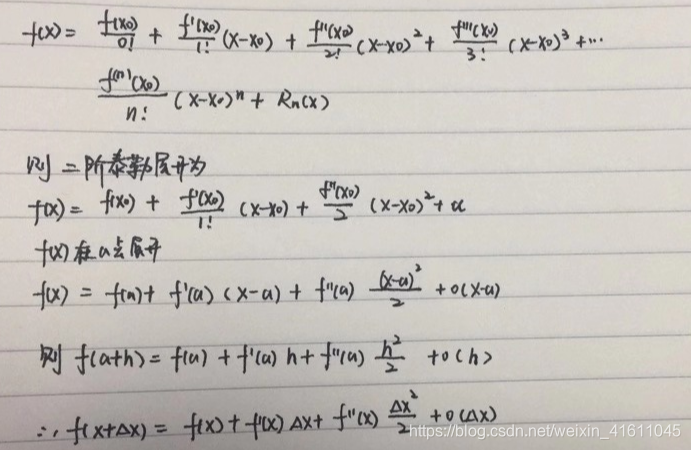 f(x) = f(x₀)/0! + f'(x₀)/1! (x-x₀) + f''(x₀)/2! (x-x₀)² + f'''(x₀)/3! (x-x₀)³ + ...
f⁽ⁿ⁾(x₀)/n! (x-x₀)ⁿ + Rₙ(x)
则 二阶泰勒展开为
f(x) = f(x₀) + f'(x₀)/1! (x-x₀) + f''(x₀)/2 (x-x₀)² + α
f(x) 在a点展开
f(x) = f(a) + f'(a) (x-a) + f''(a) (x-a)²/2 + o(x-a)
则 f(a+h) = f(a) + f'(a) h + f''(a) h²/2 + o(h)
∴ f(x+Δx) = f(x) + f'(x) Δx + f''(x) Δx²/2 + o(Δx)
https://blog.csdn.net/weixin_41611045